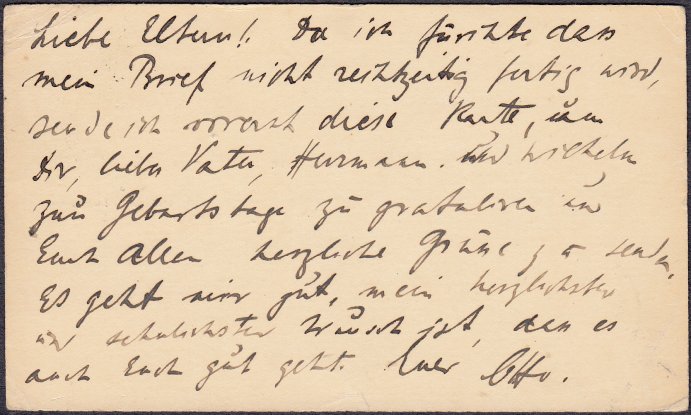 Liebe Eltern!! Da ich fürchte dass
mein Brief nicht rechtzeitig fertig wird,
sende ich vorerst diese Karte, um
Dir, lieber Vater, Herrmann und Wilhelm
zum Geburtstage zu gratuliren und
Euch Allen herzliche Grüße zu senden.
Es geht mir gut, mein herzlichster
und sehnlichster Wunsch ist, dass es
auch Euch gut geht. Euer Otto.